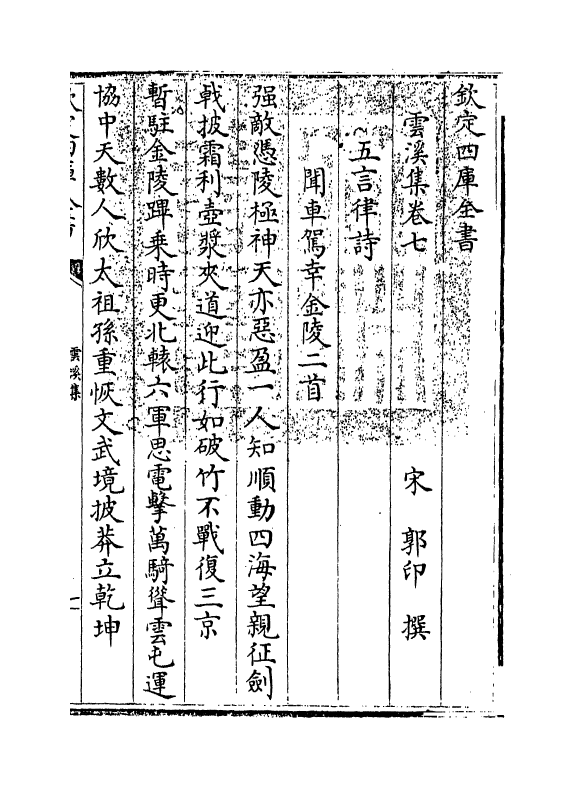 欽定四庫全書
雲溪集卷七
宋　郭印　撰
五言律詩
聞車駕幸金陵二首
强敵憑陵極神天亦惡盈一人知順動四海望親征劍
戟披霜利壺漿夾道迎此行如破竹不戰復三京
暫駐金陵蹕乗時更北轅六軍思電擊萬騎聳雲屯運
協中天數人欣太祖孫重恢文武境披莽立乾坤
雲溪集
一